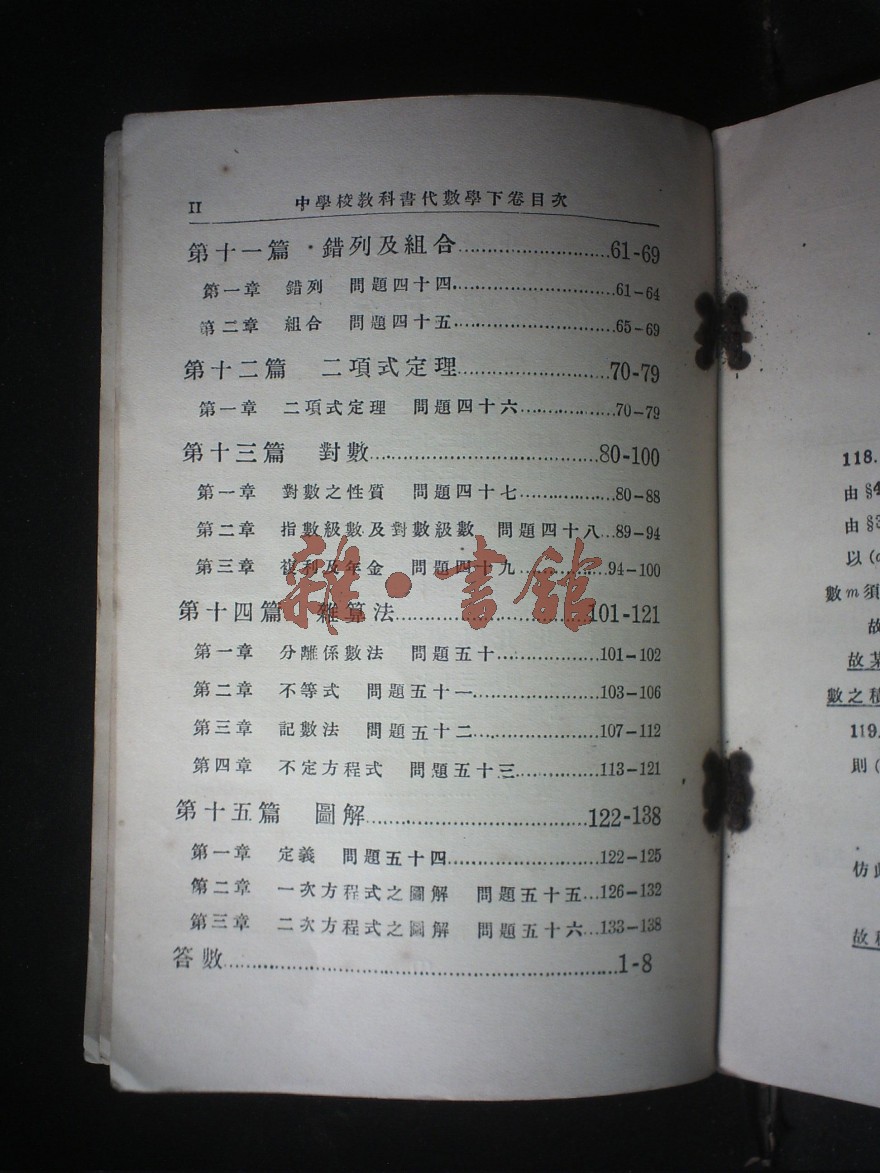 II 中學校教科書代數學下卷目次
第十一篇 錯列及組合..............................61-69
第一章 錯列 問題四十四..............................61-64
第二章 組合 問題四十五..............................65-69
第十二篇 二項式定理..............................70-79
第一章 二項式定理 問題四十六..................70-79
第十三篇 對數..........................................80-100
第一章 對數之性質 問題四十七..................80-88
第二章 指數級數及對數級數 問題四十八...89-94
第三章 複利及年金 問題四十九..................94-100
第十四篇 雜算法..............................101-121
第一章 分離係數法 問題五十..................101-102
第二章 不等式 問題五十一........................103-106
第三章 記數法 問題五十二........................107-112
第四章 不定方程式 問題五十三..................113-121
第十五篇 圖解..............................122-138
第一章 定義 問題五十四..............................122-125
第二章 一次方程式之圖解 問題五十五...126-132
第三章 二次方程式之圖解 問題五十六...133-138
答數............................................................1-8
雜·書舘
118.
由§4
由§3
以(
數m須
故
故某
數之積
119.
則(
仿此
故積